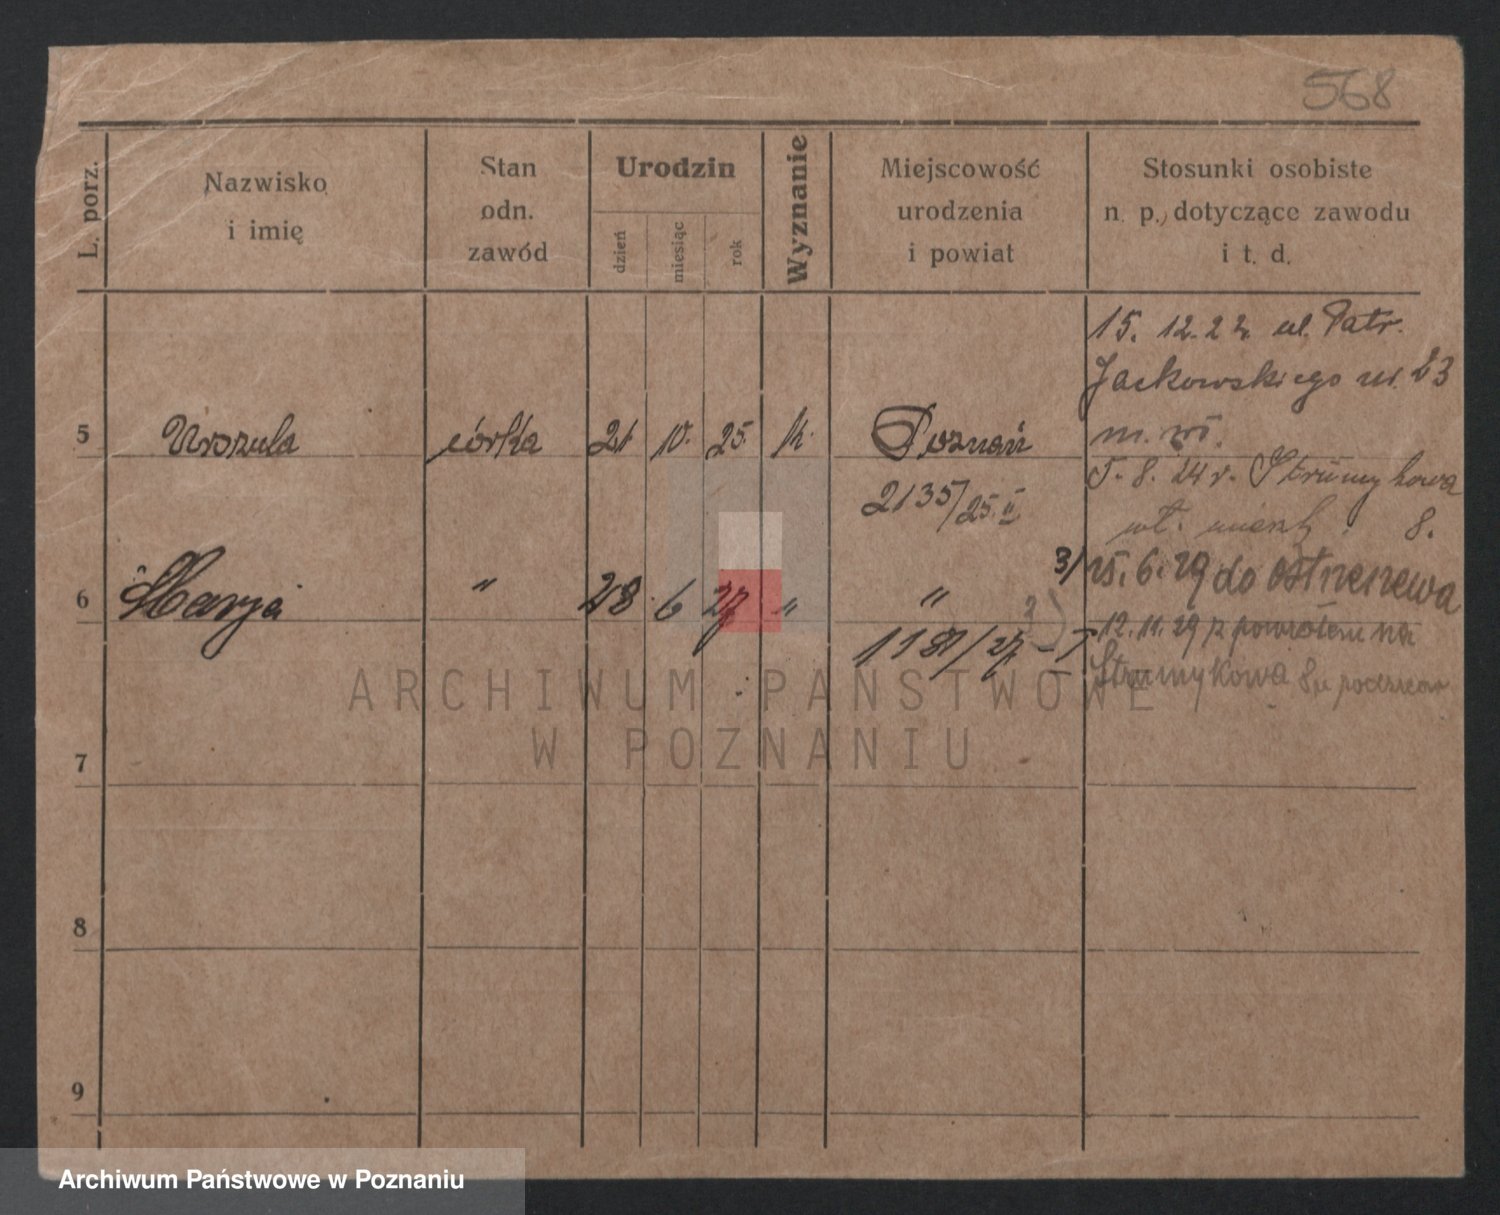 568
L. porz.
Nazwisko
i imię
Stan
odn.
zawód
Urodzin
dzień
miesiąc
rok
Wyznanie
Miejscowość
urodzenia
i powiat
Stosunki osobiste
n. p., dotyczące zawodu
i t. d.
15. 12. 22 ul. Patr.
Jackowskiego 23
5 Urszula córka 21 10. 25. k. Poznań
2135/25 II
5. 8. 24 r. Strumykowa
8.
6 Marja " 28 6 27 " "
1181/27 - I
3/ 15. 6. 29 do
12. 11. 29 z powrotem na
Strumykowa 8
ARCHIWUM PAŃSTWOWE
W POZNANIU
7
8
9
Archiwum Państwowe w Poznaniu